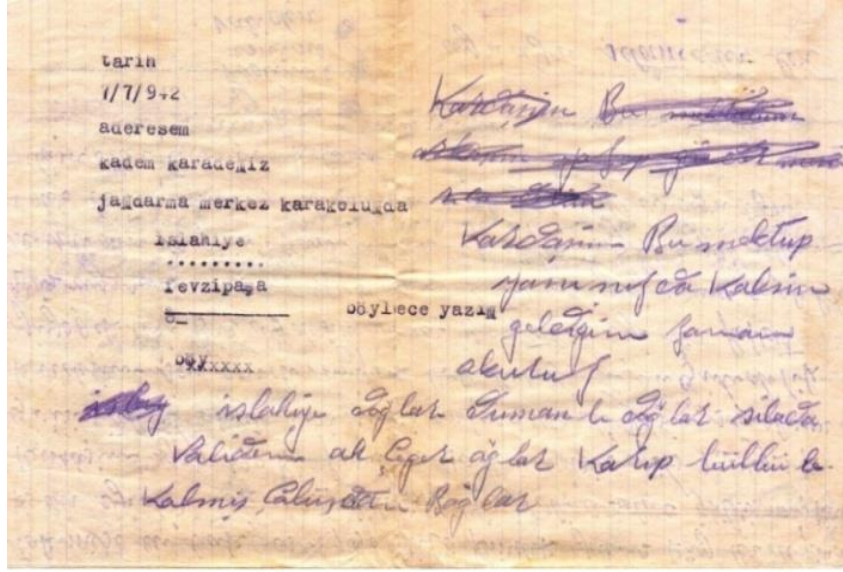 tarih
7/7/942
aderesem
kadem karadeniz
jandarma merkez karakolunda
islahiye
.........
fevzipaşa
böylece yazın
xxxxxx
Kardaşım Bu mektup
yanınızda Kalsın
geldiğim zaman
okuruz
islahiye dağlar Duman lı dağlar silada
Validem ah Çeger ağlar Karip bülbül
Kalmış Bağlar